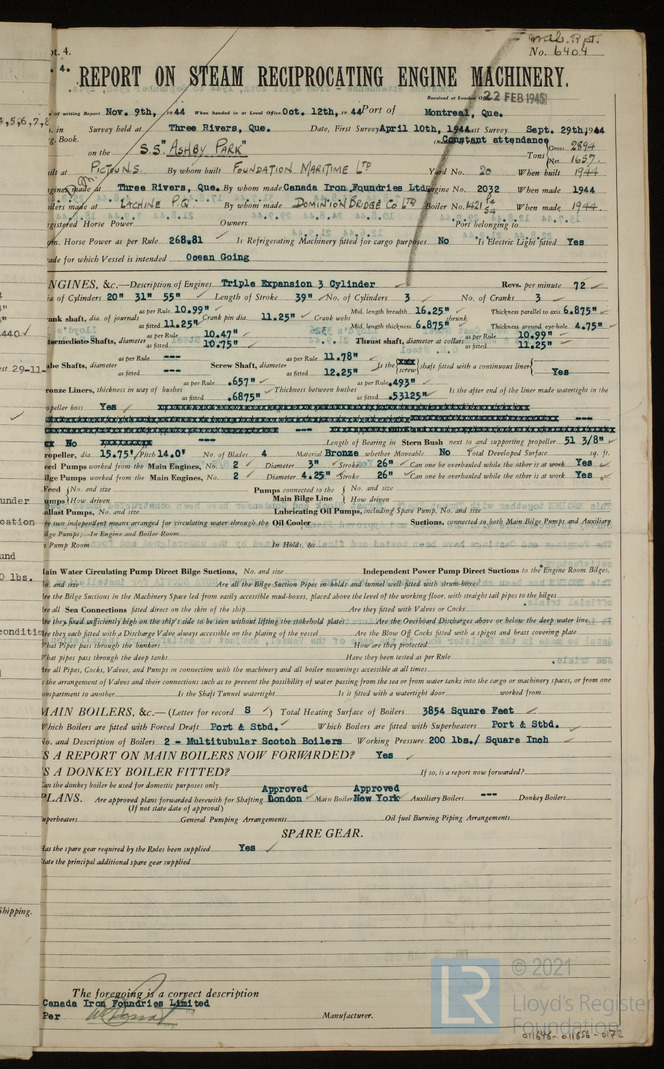 pt. 4.
No. 6404
4.
REPORT ON STEAM RECIPROCATING ENGINE MACHINERY.
Received at London Office 22 FEB 1945
of writing Report Nov. 9th, 1944 When handed in at Local Office Oct. 12th, 1944 Port of Montreal, Que.
4,5,6,7,8
in Survey held at Three Rivers, Que. Date, First Survey April 10th, 1944 Last Survey Sept. 29th, 1944
Book. Constant attendance
on the S.S "ASHBY PARK" Tons Gross 2894 Net 1657
built at PICTOU N.S. By whom built FOUNDATION MARITIME LTD Yard No. 20 When built 1944
Engines made at Three Rivers, Que. By whom made Canada Iron Foundries Ltd Engine No. 2032 When made 1944
Boilers made at LACHINE P.Q. By whom made DOMINION BRIDGE CO LTD Boiler No. When made 1944
Registered Horse Power Owners Port belonging to
Nom. Horse Power as per Rule 268.81 Is Refrigerating Machinery fitted for cargo purposes No Is Electric Light fitted Yes
Trade for which Vessel is intended Ocean Going
ENGINES, &c.—Description of Engines Triple Expansion 3 Cylinder Revs. per minute 72
Dia of Cylinders 20" 31" 55" Length of Stroke 39" No. of Cylinders 3 No. of Cranks 3
Crank shaft, dia. of journals as per Rule 10.99" as fitted 11.25" Crank pin dia. 11.25" Crank webs Mid. length breadth 16.25" Mid. length thickness 6.875" shrunk Thickness parallel to axis 6.875" Thickness around eye-hole 4.75"
Intermediate Shafts, diameter as per Rule 10.47" as fitted 10.75" Thrust shaft, diameter at collars as per Rule 10.99" as fitted 11.25"
Tube Shafts, diameter as per Rule --- as fitted --- Screw Shaft, diameter as per Rule 11.78" as fitted 12.25" Is the screw shaft fitted with a continuous liner Yes
Bronze Liners, thickness in way of bushes as per Rule .657" as fitted .6875" Thickness between bushes as per Rule .493" as fitted .53125" Is the after end of the liner made watertight in the
propeller boss Yes
---
---
No --- Length of Bearing in Stern Bush next to and supporting propeller 51 3/8"
Propeller, dia. 15.75' Pitch 14.0' No. of Blades 4 Material Bronze whether Moveable No Total Developed Surface sq. ft.
Feed Pumps worked from the Main Engines, No. 2 Diameter 3" Stroke 26" Can one be overhauled while the other is at work Yes
Bilge Pumps worked from the Main Engines, No. 2 Diameter 4.25" Stroke 26" Can one be overhauled while the other is at work Yes
Feed Pumps No. and size How driven Pumps connected to the Main Bilge Line No. and size How driven
Ballast Pumps, No. and size Lubricating Oil Pumps, including Spare Pump, No. and size
Are two independent means arranged for circulating water through the Oil Cooler Suctions, connected to both Main Bilge Pumps and Auxiliary
Bilge Pumps:—In Engine and Boiler Room
In Pump Room In Holds, &c.
Main Water Circulating Pump Direct Bilge Suctions, No. and size Independent Power Pump Direct Suctions to the Engine Room Bilges,
No. and size Are all the Bilge Suction Pipes in holds and tunnel well fitted with strum-boxes
Are the Bilge Suctions in the Machinery Space led from easily accessible mud-boxes, placed above the level of the working floor, with straight tail pipes to the bilges
Are all Sea Connections fitted direct on the skin of the ship Are they fitted with Valves or Cocks
Are they fixed sufficiently high on the ship's side to be seen without lifting the stokehold plates Are the Overboard Discharges above or below the deep water line
Are they each fitted with a Discharge Valve always accessible on the plating of the vessel Are the Blow Off Cocks fitted with a spigot and brass covering plate
What Pipes pass through the bunkers How are they protected
What pipes pass through the deep tanks Have they been tested as per Rule
Are all Pipes, Cocks, Valves, and Pumps in connection with the machinery and all boiler mountings accessible at all times
Is the arrangement of Valves and their connections such as to prevent the possibility of water passing from the sea or from water tanks into the cargo or machinery spaces, or from one
compartment to another Is the Shaft Tunnel watertight Is it fitted with a watertight door worked from
MAIN BOILERS, &c.—(Letter for record S ) Total Heating Surface of Boilers 3854 Square Feet
Which Boilers are fitted with Forced Draft Port & Stbd. Which Boilers are fitted with Superheaters Port & Stbd.
No. and Description of Boilers 2 - Multitubular Scotch Boilers Working Pressure 200 lbs./ Square Inch
IS A REPORT ON MAIN BOILERS NOW FORWARDED? Yes
IS A DONKEY BOILER FITTED? If so, is a report now forwarded?
Can the donkey boiler be used for domestic purposes only
PLANS. Are approved plans forwarded herewith for Shafting Approved London Main Boilers Approved New York Auxiliary Boilers --- Donkey Boilers
(If not state date of approval)
Superheaters General Pumping Arrangements Oil fuel Burning Piping Arrangements
SPARE GEAR.
Has the spare gear required by the Rules been supplied Yes
State the principal additional spare gear supplied
Shipping.
The foregoing is a correct description
Canada Iron Foundries Limited
Per Manufacturer.
LR © 2021
Lloyd's Register
Foundation
011646-011656-0172